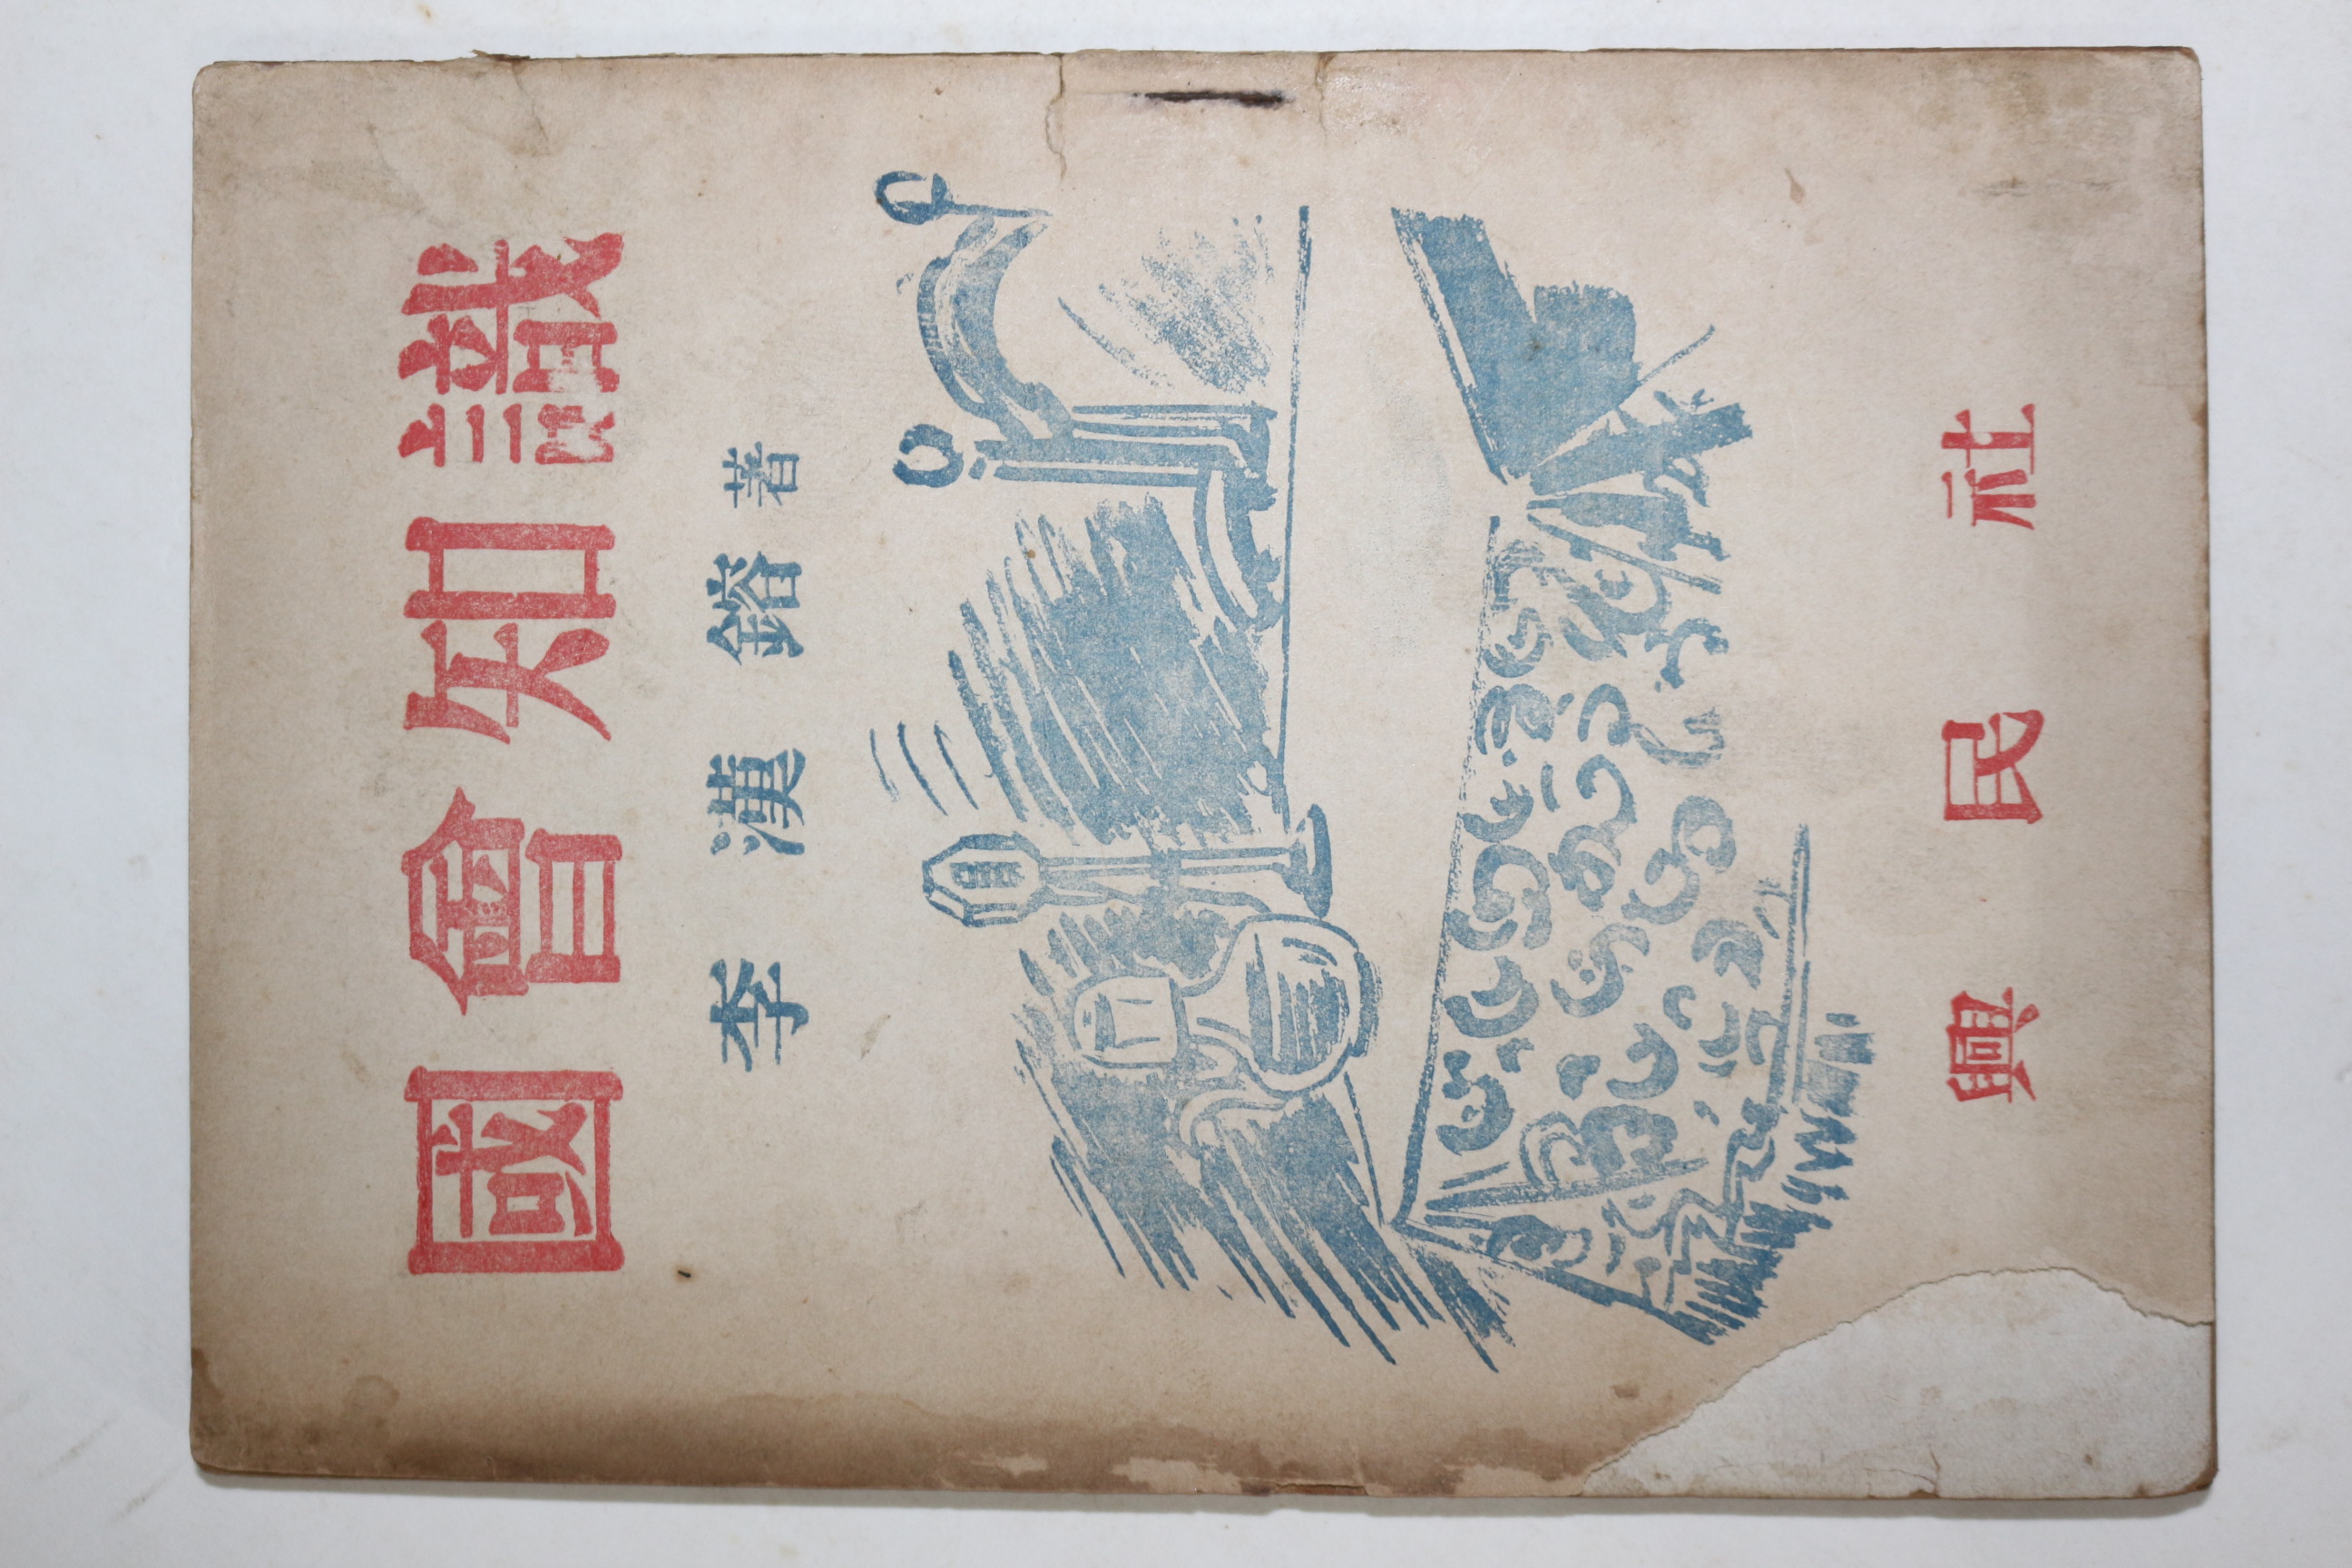 國會知識
李漢鎔著
興民社